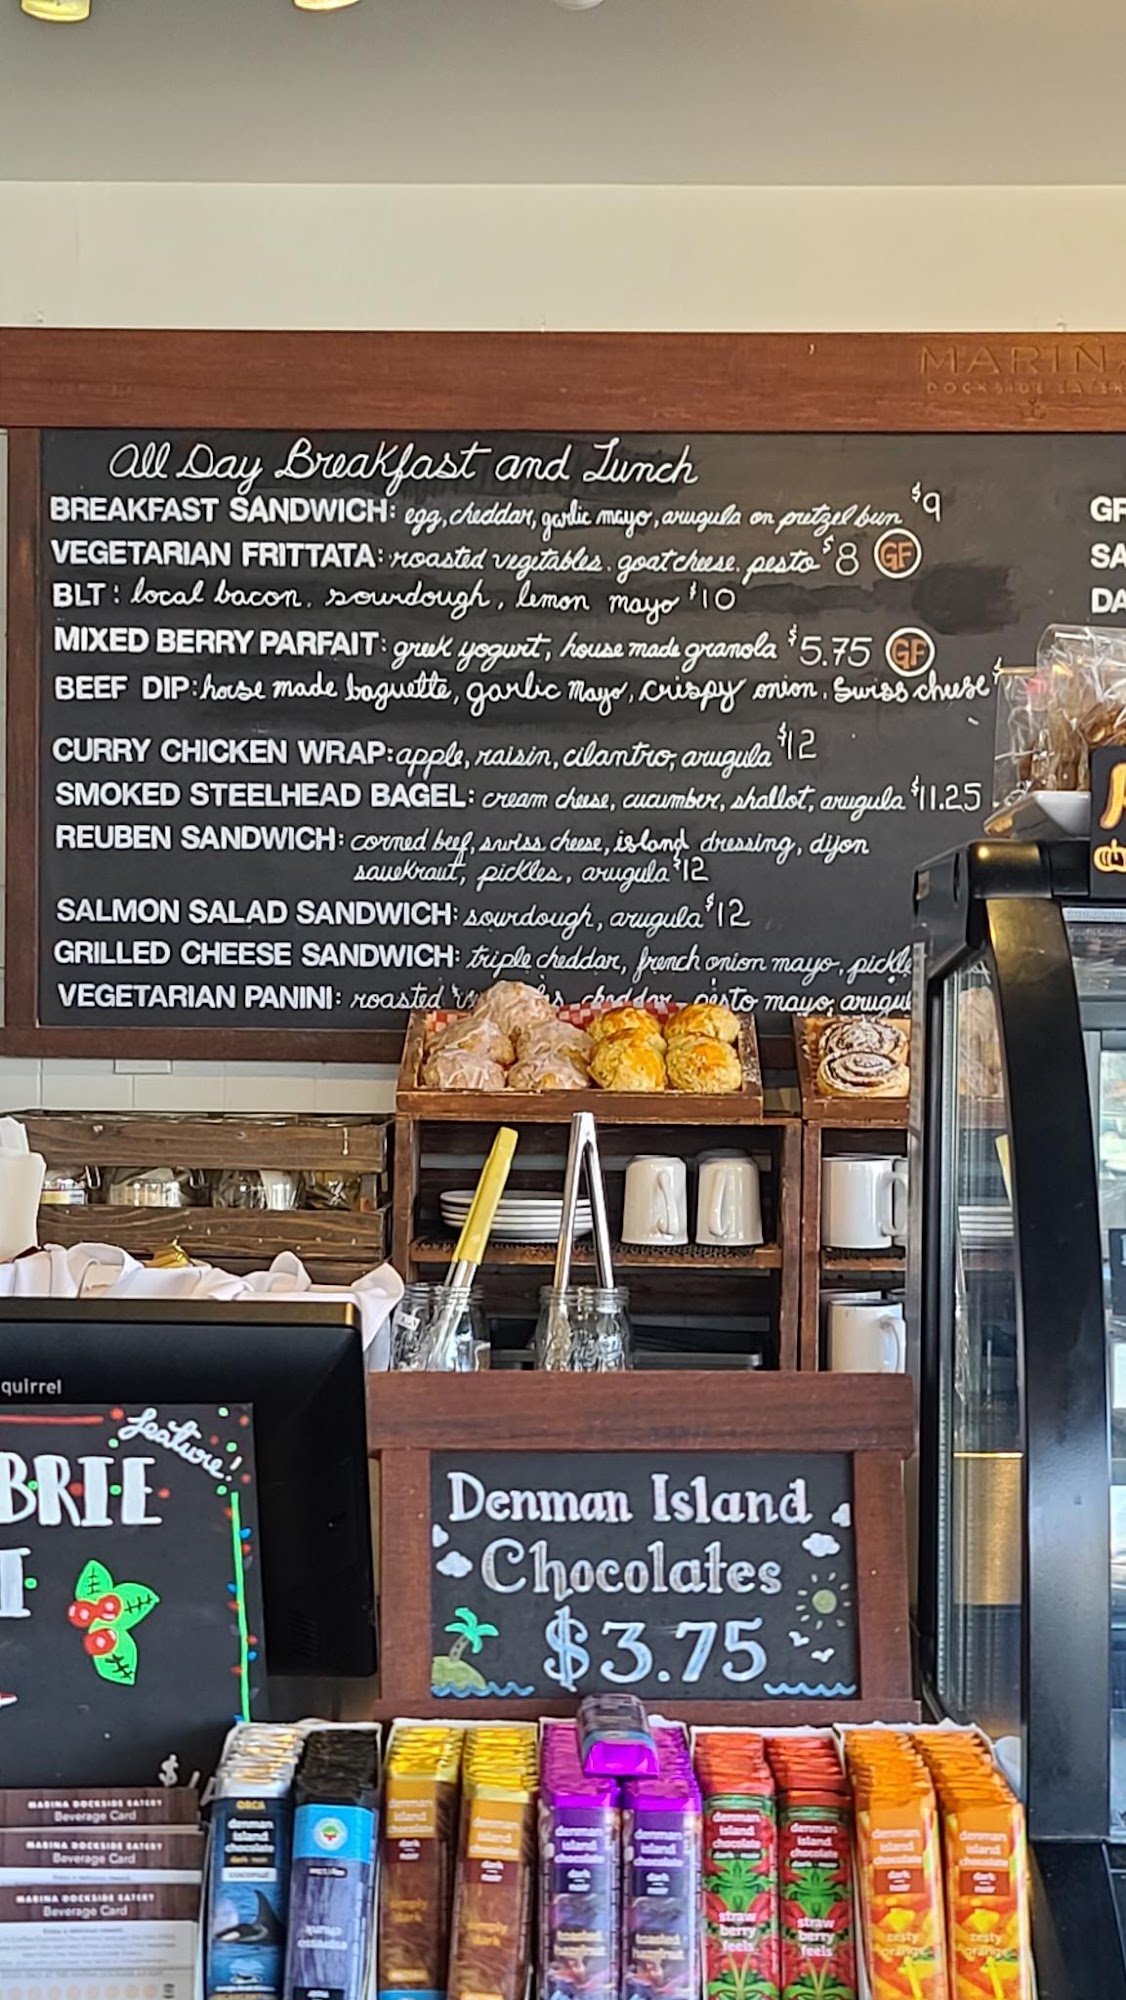 MARINA
DOCKSIDE EATERY
All Day Breakfast and Lunch
BREAKFAST SANDWICH: egg, cheddar, garlic mayo, arugula on pretzel bun $9
VEGETARIAN FRITTATA: roasted vegetables, goat cheese, pesto $8 GF
BLT: local bacon, sourdough, lemon mayo $10
MIXED BERRY PARFAIT: greek yogurt, house made granola $5.75 GF
BEEF DIP: house made baguette, garlic mayo, crispy onion, swiss cheese $
CURRY CHICKEN WRAP: apple, raisin, cilantro, arugula $12
SMOKED STEELHEAD BAGEL: cream cheese, cucumber, shallot, arugula $11.25
REUBEN SANDWICH: corned beef, swiss cheese, island dressing, dijon
sauekraut, pickles, arugula $12
SALMON SALAD SANDWICH: sourdough, arugula $12
GRILLED CHEESE SANDWICH: triple cheddar, french onion mayo, pickle
VEGETARIAN PANINI: roasted cheddar pesto mayo, arugul
GR
SA
DA
quirrel
feature!
BRIE
$
Denman Island
Chocolates
$3.75
MARINA DOCKSIDE EATERY
Beverage Card
MARINA DOCKSIDE EATERY
Beverage Card
MARINA DOCKSIDE EATERY
Beverage Card
ORCA
denman
island
chocolate
dark noir
coconut
denman
island
chocolate
dark
noir
simply
dark
denman
island
chocolate
dark
noir
simply
dark
denman
island
chocolate
dark
noir
toasted
hazelnut
denman
island
chocolate
dark
noir
toasted
hazelnut
denman
island
chocolate
dark noir
straw
berry
feels
denman
island
chocolate
dark noir
straw
berry
feels
denman
island
chocolate
dark
noir
zesty
orange
denman
island
chocolate
dark
noir
zesty
orange